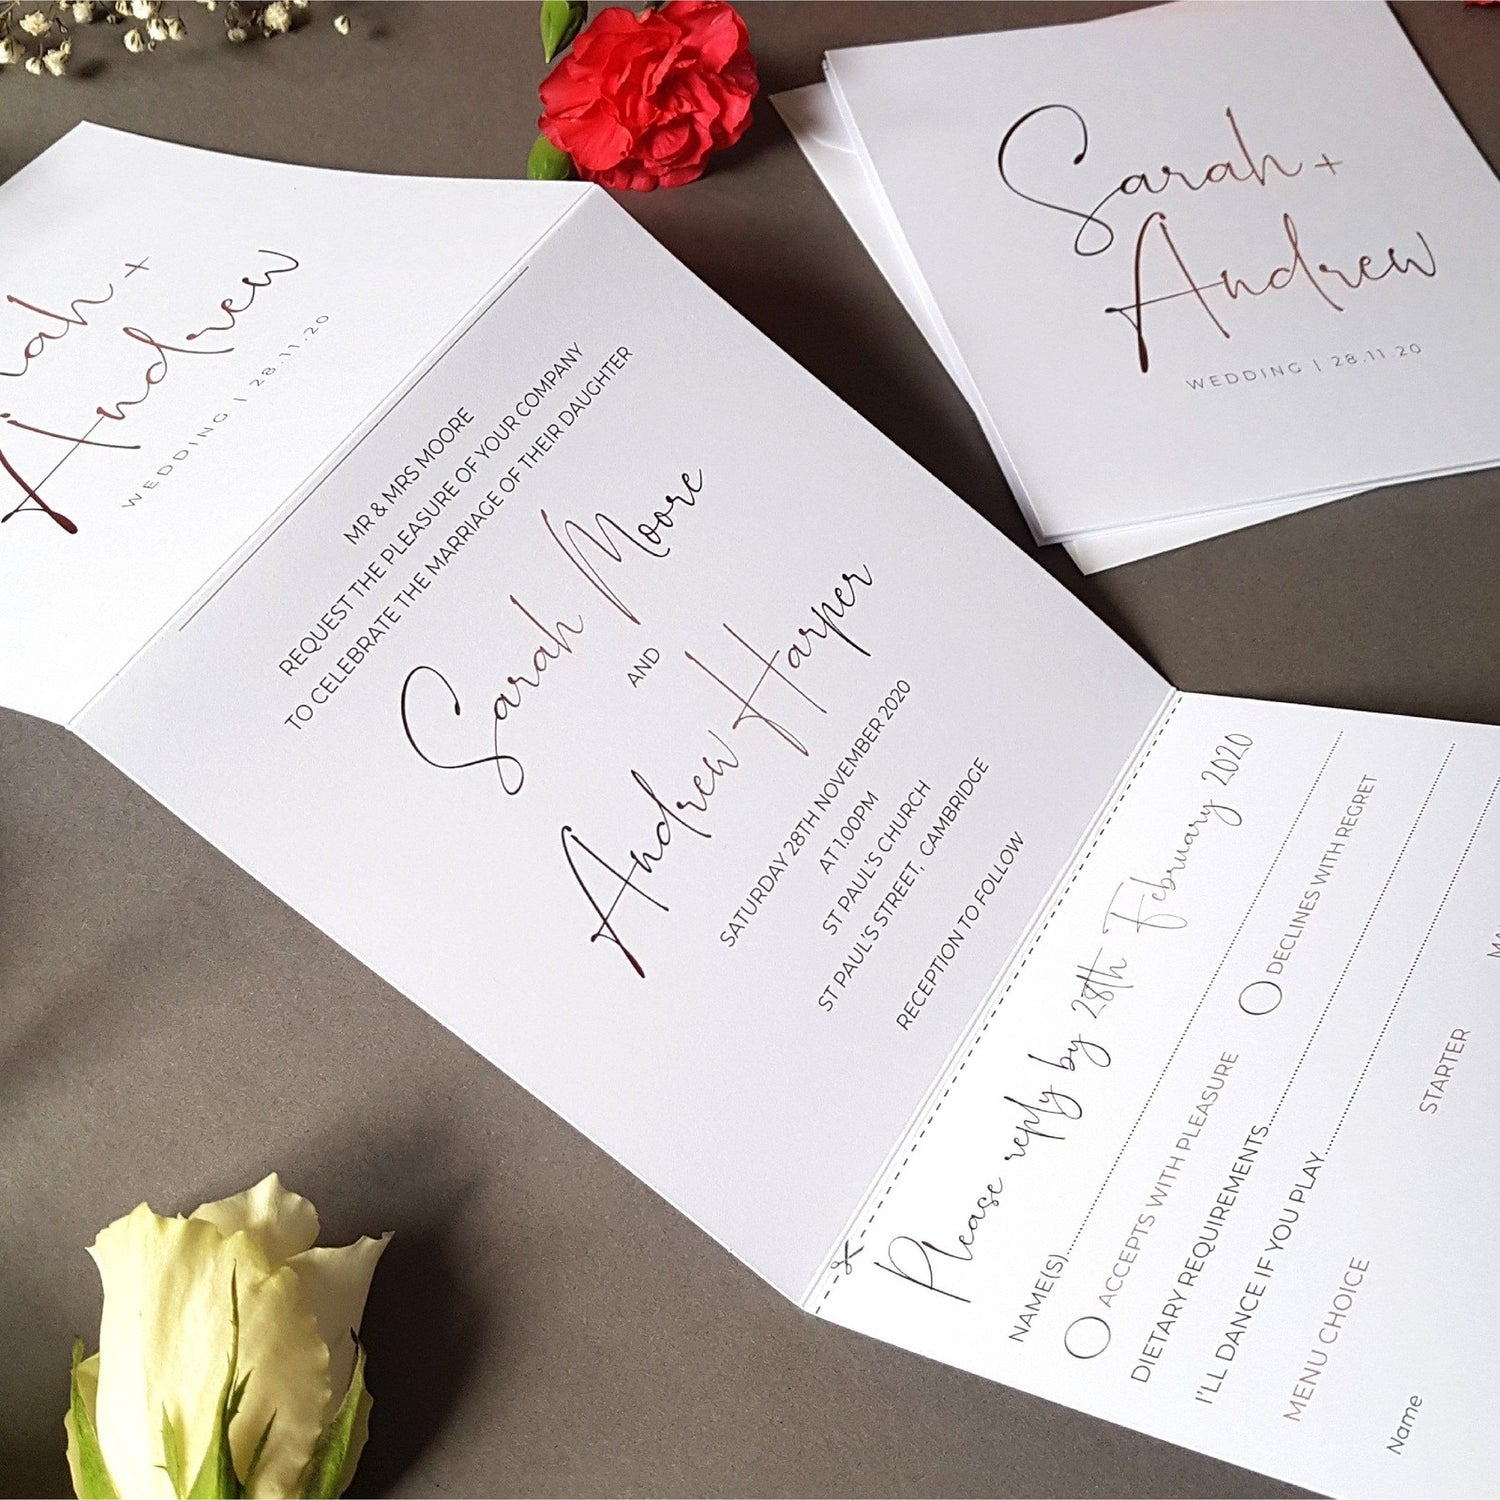 Andrew
WEDDING | 28.11.20
MR & MRS MOORE
REQUEST THE PLEASURE OF YOUR COMPANY
TO CELEBRATE THE MARRIAGE OF THEIR DAUGHTER
Sarah Moore
AND
Andrew Harper
SATURDAY 28TH NOVEMBER 2020
AT 1.00PM
ST PAUL'S CHURCH
ST PAUL'S STREET, CAMBRIDGE
RECEPTION TO FOLLOW
Sarah +
Andrew
WEDDING | 28.11.20
Please reply by 28th February 2020
NAME(S)
ACCEPTS WITH PLEASURE DECLINES WITH REGRET
DIETARY REQUIREMENTS
I'LL DANCE IF YOU PLAY
MENU CHOICE
STARTER
Name